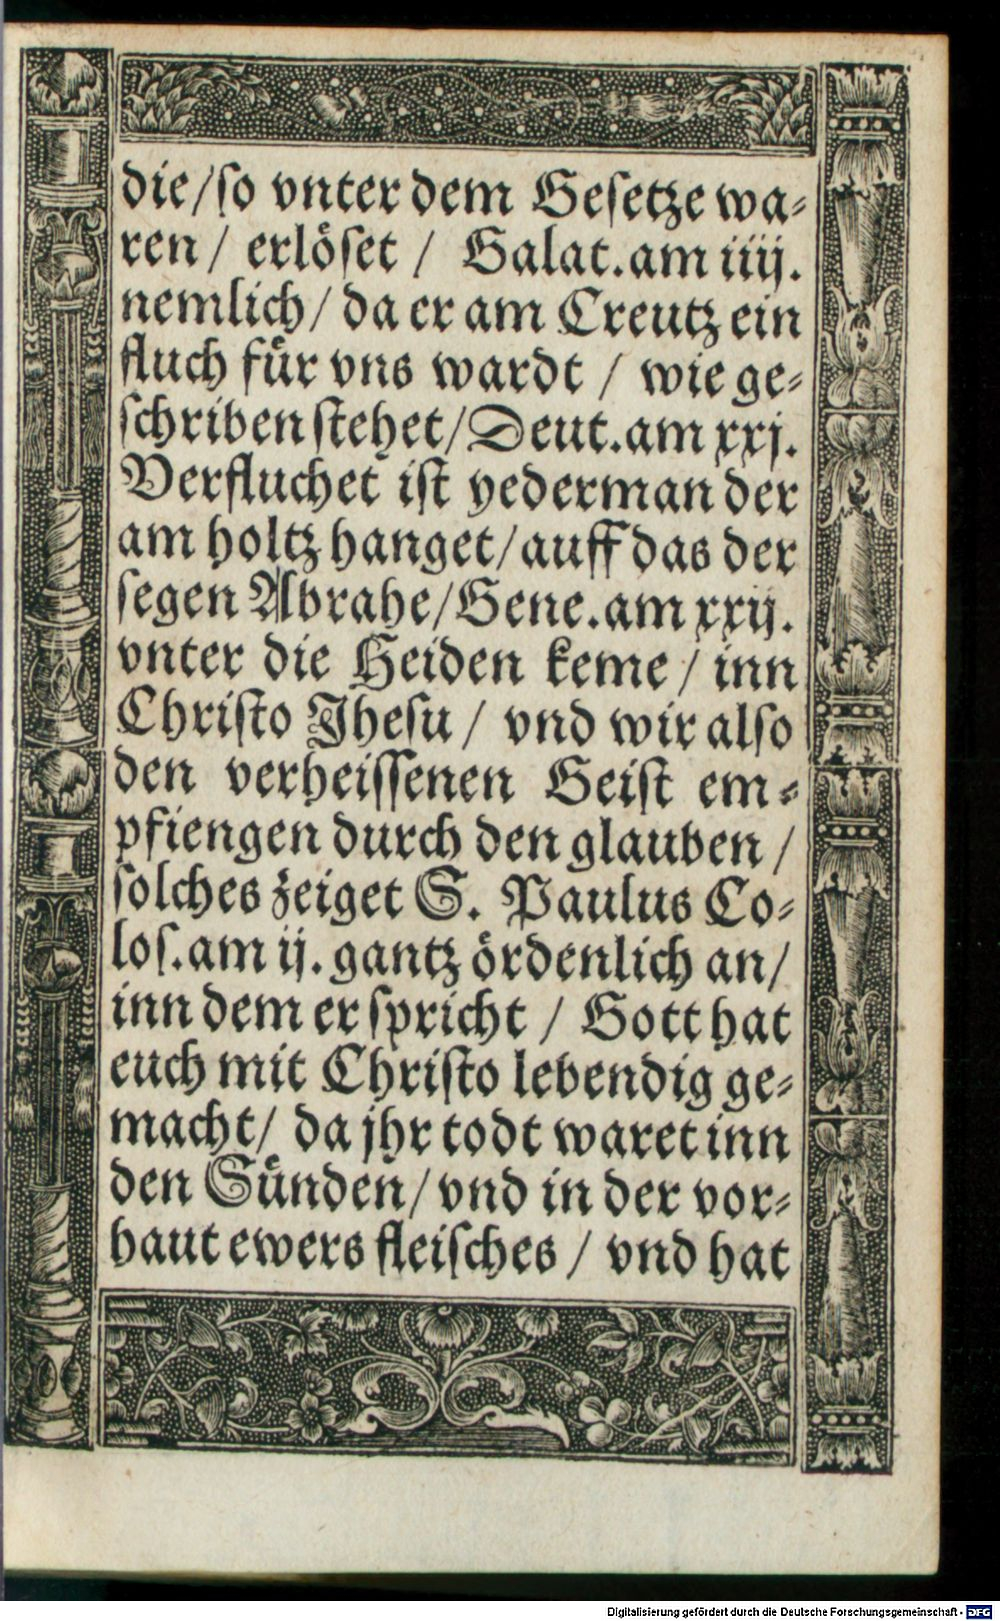 die/ſo vnter dem Geſetze wa⸗
ren / erlöſet / Galat.am iiij.
nemlich/ da er am Creutz ein
fluch für vns wardt / wie ge⸗
ſchriben ſtehet/Deut.am xxj.
Verfluchet iſt yederman der
am holtz hanget/auff das der
ſegen Abrahe/Gene.am xxij.
vnter die Heiden keme / inn
Chriſto Jheſu / vnd wir alſo
den verheiſſenen Geiſt em⸗
pfiengen durch den glauben /
ſolches zeiget S. Paulus Co⸗
loſ.am ij. gantz ördenlich an/
inn dem er ſpricht / Gott hat
euch mit Chriſto lebendig ge⸗
macht/ da jhr todt waret inn
den Sünden/ vnd in der vor⸗
haut ewers fleiſches / vnd hat
Digitalisierung gefördert durch die Deutsche Forschungsgemeinschaft - DFG